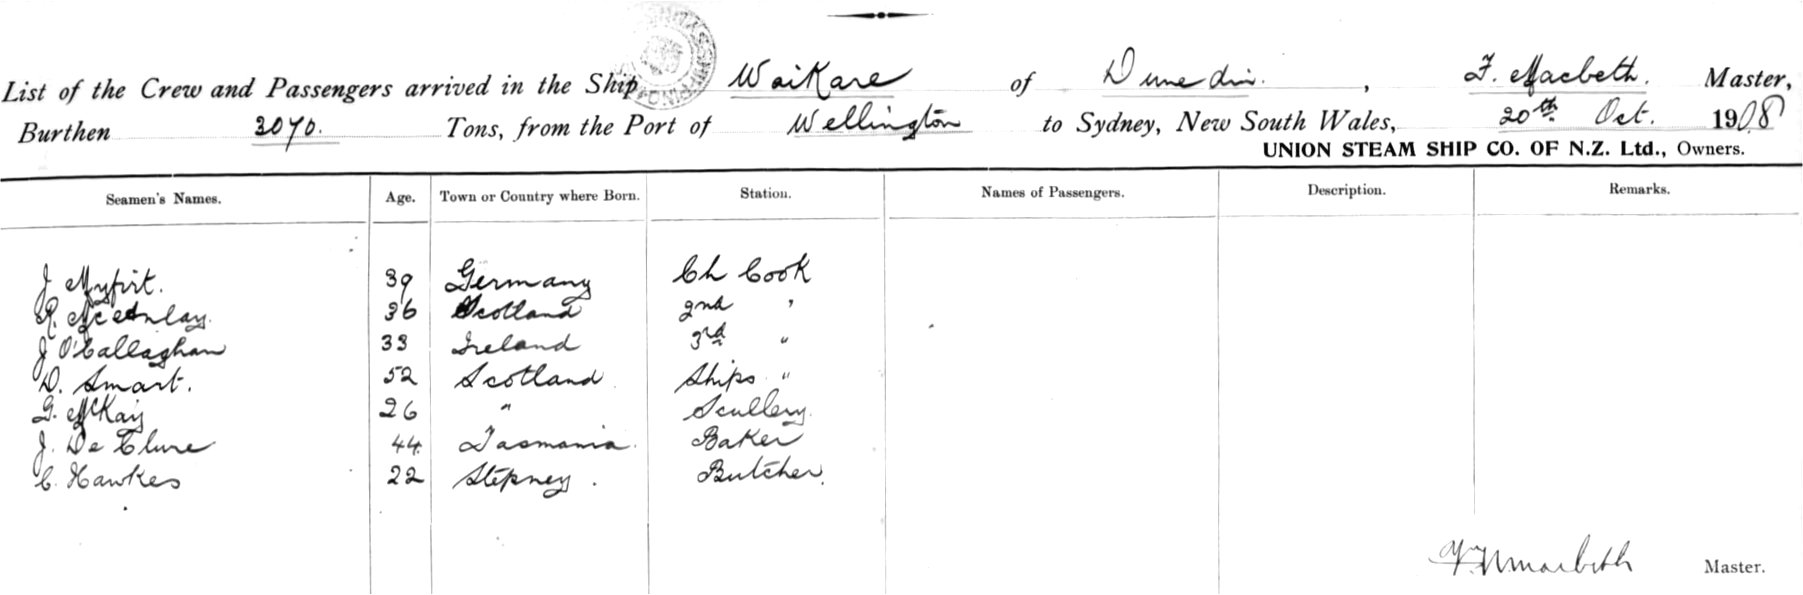 List of the Crew and Passengers arrived in the Ship Waikare of Dunedin. , F. Macbeth. Master,
Burthen 3070. Tons, from the Port of Wellington to Sydney, New South Wales, 20th Oct. 1908
UNION STEAM SHIP CO. OF N.Z. Ltd., Owners.
Seamen's Names. Age. Town or Country where Born. Station. Names of Passengers. Description. Remarks.
J 39 Germany Ch Cook
R. 36 Scotland 2nd "
J O'Callaghan 33 Ireland 3rd "
D. Smart. 52 Scotland Ships "
G. McKay 26 " Scullery.
J. De Clure 44 Tasmania. Baker
C. Hawkes 22 Stepney . Butcher.
Macbeth Master.